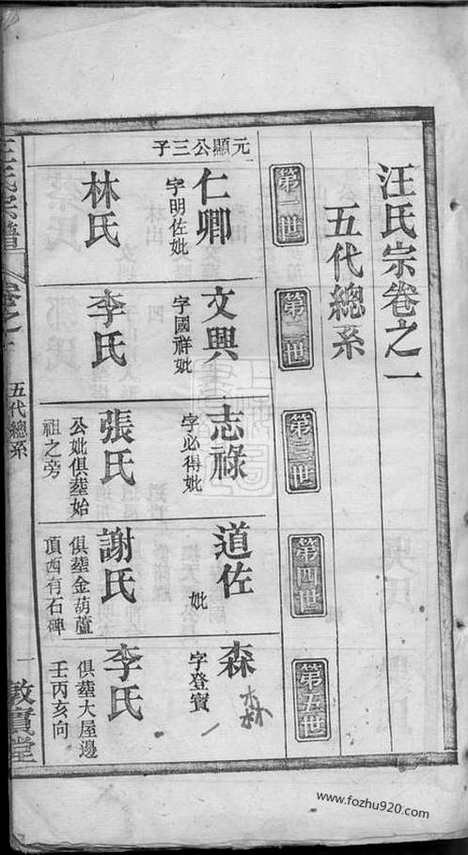 汪氏宗卷之一
五代總系
第一世
第二世
第三世
第四世
第五世
元顯公三子
仁卿
字明佐妣
林氏
文興
字國祥妣
李氏
志祿
字必得妣
張氏
公妣俱塟始
祖之旁
道佐
妣
謝氏
俱塟金葫蘆
頂西有石碑
森
字登寶
森
李氏
俱塟大屋邊
壬丙亥向
汪氏宗譜
卷之一
五代總系
一
敦實堂
www.fozhu920.com